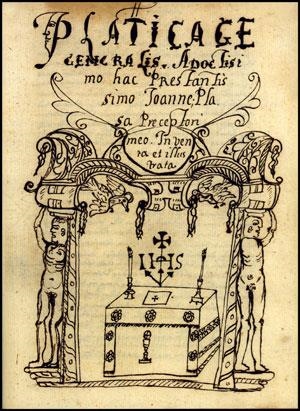 PLATICAGE
GENERALIS. ADOCTISI
mo hac Prestantis
simo Joanne Pla
sa Preceptori
meo. Inven
ra et illus
trata
IHS